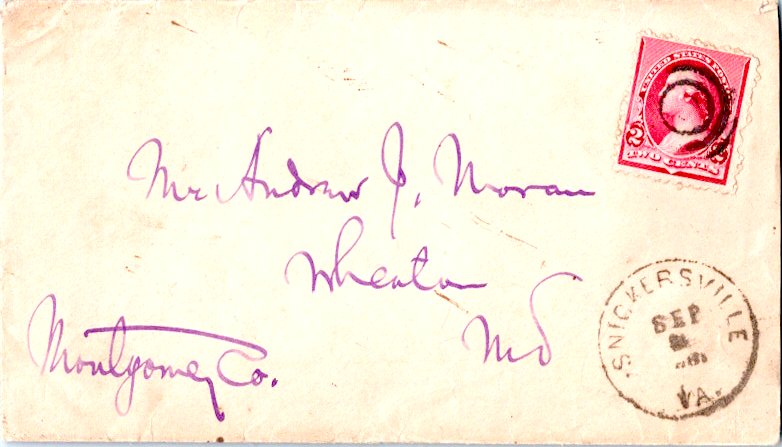 UNITED STATES POSTAGE
2 2
TWO CENTS
Mr. Andrew J. Moran
Wheaton
Md
Montgomery Co.
SNICKERSVILLE
SEP
VA.